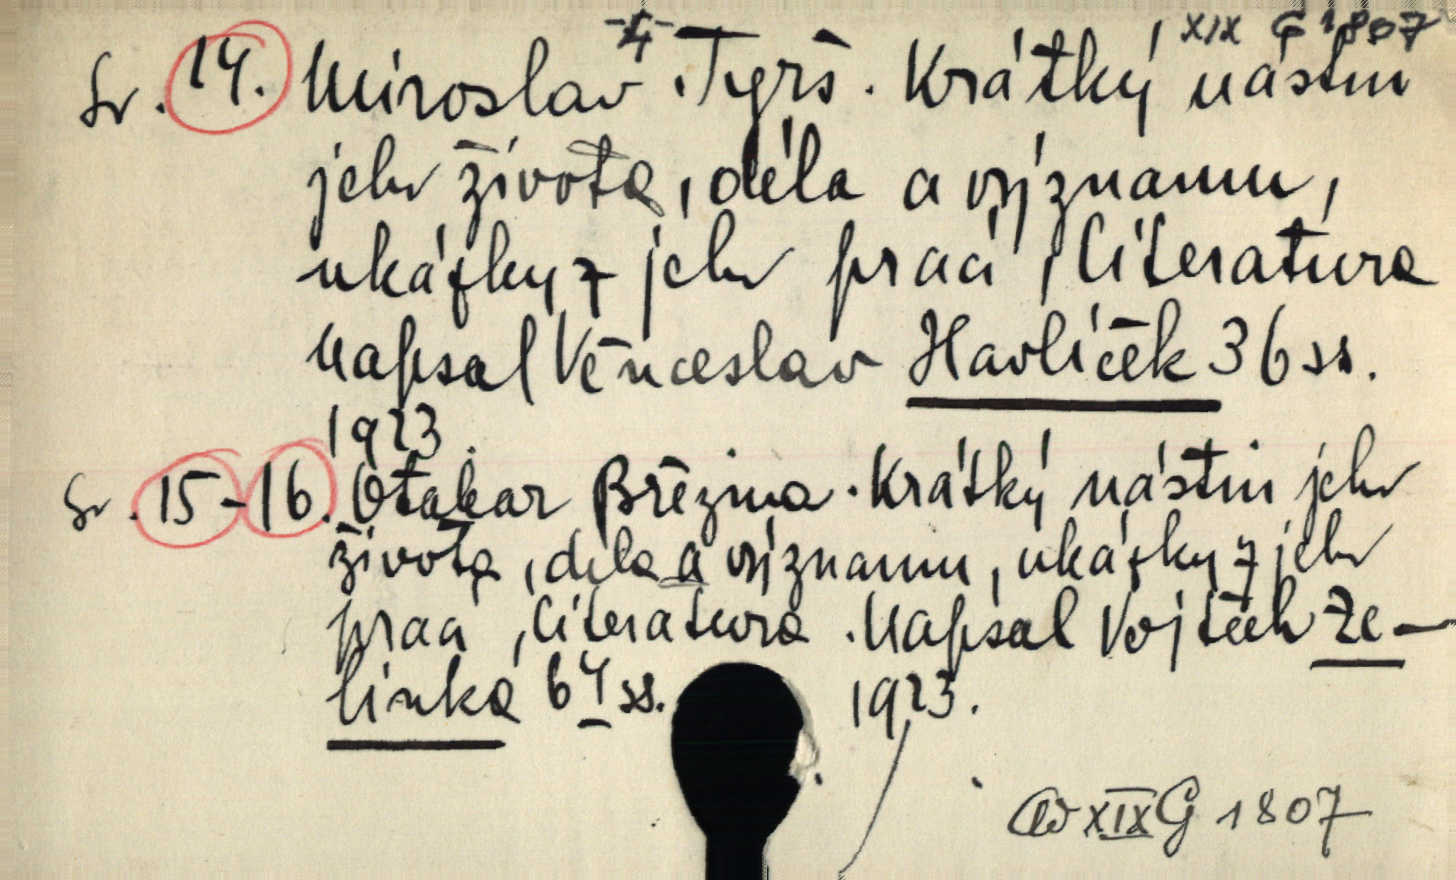 -4- XIX G 1807
Sv. 14. Miroslav Tyrš. Krátký nástin
jeho života, díla a významu,
ukázky z jeho prací, literatura
napsal Věnceslav Havlíček 36 ss.
1923.
Sv. 15-16. Otakar Březina. Krátký nástin jeho
života, díla a významu, ukázky z jeho
prací, literatura. Napsal Vojtěch Ze-
linka 64 ss. 1923.
XIX G 1807